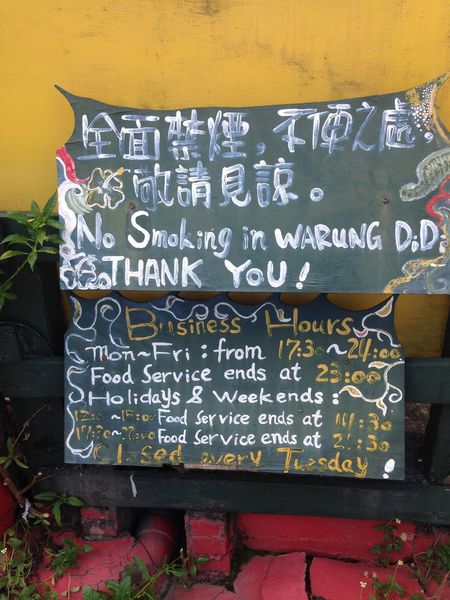 全面禁煙，不便之處，
敬請見諒。
No Smoking in WARUNG DiD.
THANK YOU!
Business Hours
Mon~Fri : from 17:30~24:00
Food Service ends at 23:00
Holidays & Weekends :
12:00~15:00 Food Service ends at 14:30
17:30~22:00 Food Service ends at 21:30
Closed every Tuesday !